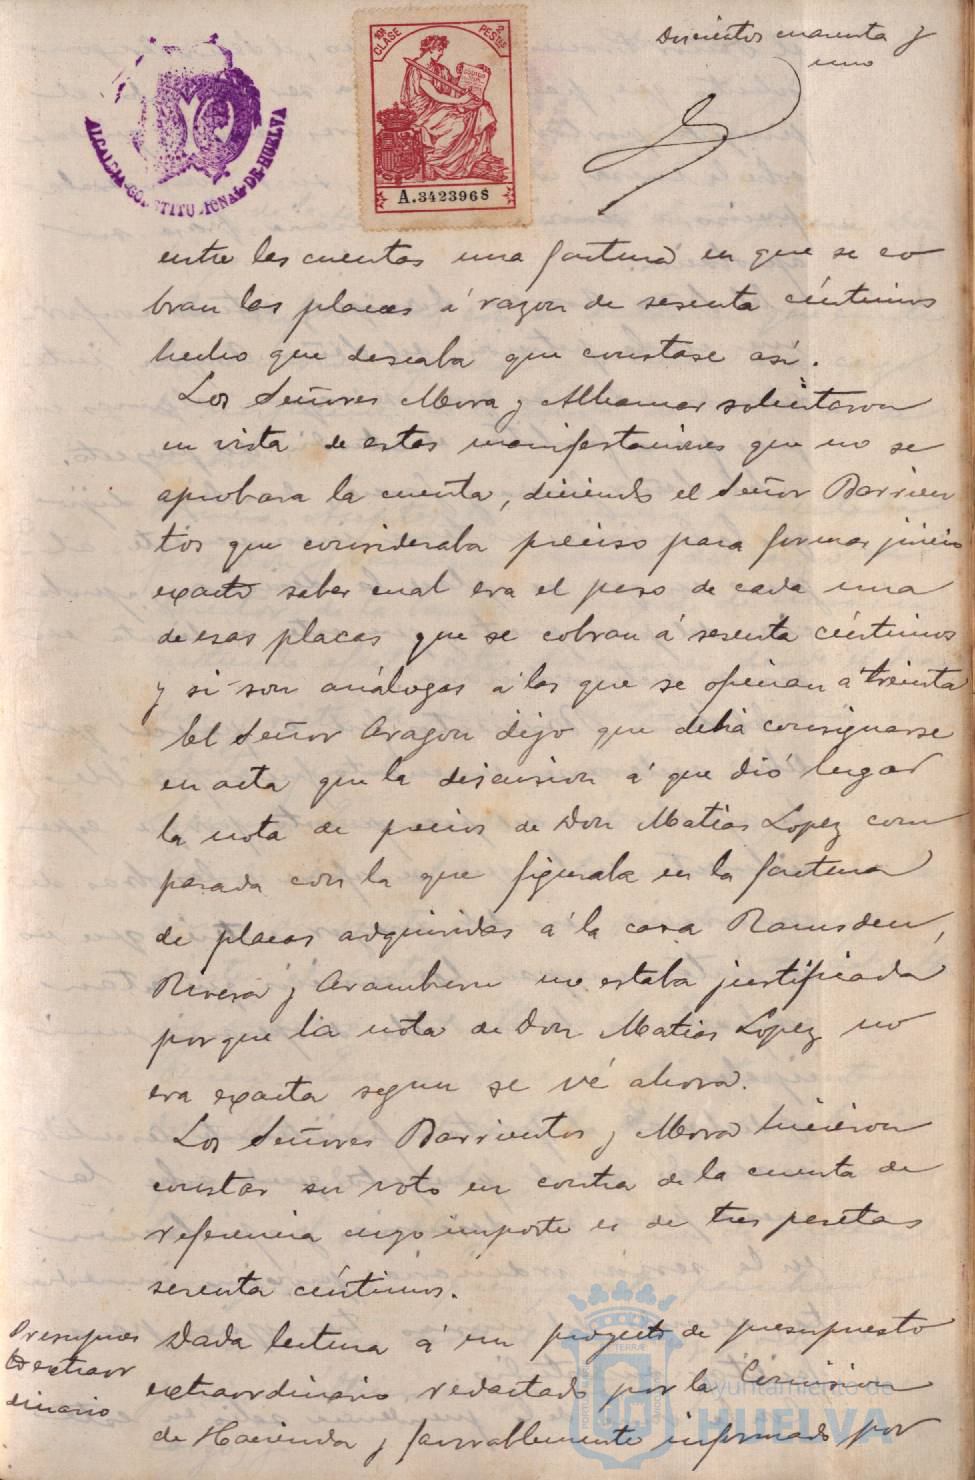 Doscientos cuarenta y
uno
ALCALDIA-CONSTITUCIONAL-DE-HUELVA
10ª CLASE
2 PESETAS
A.3423968
entre las cuentas una factura en que se co
bran las placas á razon de sesenta céntimos
hecho que deseaba que constase así.
Los Señores Mora y Alhamar solicitaron
en vista de estas manifestaciones que no se
aprobara la cuenta, diciendo el Señor Barrien
tos que consideraba preciso para formar juicio
exacto saber cual era el peso de cada una
de esas placas que se cobran á sesenta céntimos
y si son análogas á las que se ofrecian á treinta
El Señor Aragon dijo que debia consignarse
en acta que la discusion á que dió lugar
la nota de precios de Don Matias Lopez com
parada con la que figuraba en la factura
de placas adquiridas á la casa Ramsden,
Rivera y Aramburu no estaba justificada
porque la nota de Don Matias Lopez no
era exacta segun se vé ahora.
Los Señores Barrientos y Mora hicieron
constar su voto en contra de la cuenta de
referencia cuyo importe es de tres pesetas
sesenta céntimos.
Presupues
to extraor
dinario
Dada lectura á un proyecto de presupuesto
extraordinario redactado por la Comision
de Hacienda y favorablemente informado por
Ayuntamiento de
HUELVA